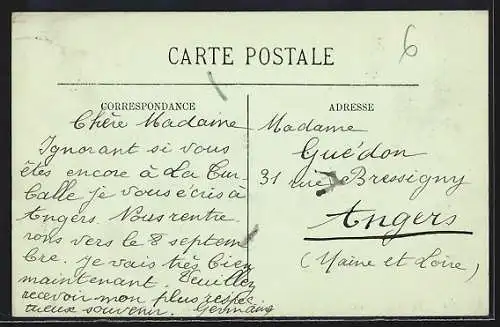 6
CARTE POSTALE
CORRESPONDANCE
Chère Madame
Ignorant si vous
êtes encore à La Tur-
balle je vous écris à
Angers. Nous rentre
rons vers le 8 septem
bre. Je vais très bien
maintenant. Veuillez
recevoir mon plus respec
tueux souvenir. Germaine
ADRESSE
Madame
Guédon
31 rue Bressigny
Angers
(Maine et Loire)